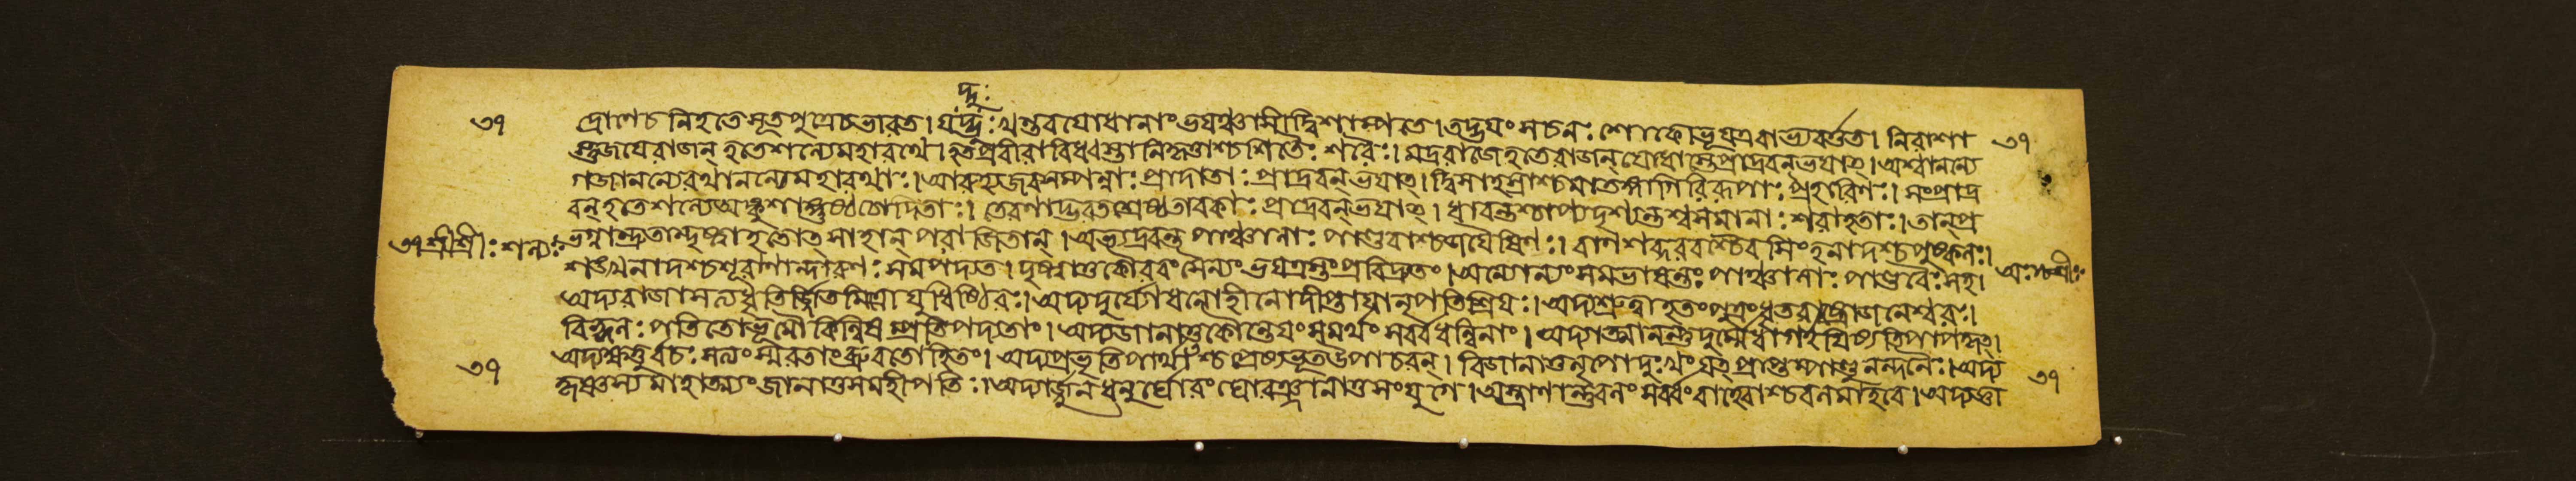 দ্দু:
৩৭
দ্রোণেচ নিহতেসূতপুত্রেচভারত। যদ্দুঃখন্তবযোধানাংভযঞ্চাসীদ্বিশাম্পতে।তদ্ভযংসচনঃশোকোভূযএবাভ্যবর্ত্তত। নিরাশা
৩৭
শ্চজযেরাজন্ হতেশল্যেমহারথে। হতপ্রবীরাবিধ্বস্তানিকৃত্তাশ্চশিতৈঃ শরৈঃ। মদ্ররাজেহতেরাজন্ যোধাস্তেপ্রাদ্রবন্ভযাত্।অশ্বানন্যে
গজানন্যেরথানন্যেমহারথাঃ।আরুহ্যজবসম্পন্নাঃ পাদাতাঃ প্রাদ্রবন্ভযাত্।দ্বিসাহস্রাশ্চমাতঙ্গাগিরিরূপাঃ প্রহারিণঃ। সংপ্রাদ্র
বন্হতেশল্যেঅঙ্কুশাঙ্গুষ্ঠচোদিতাঃ। তেরণাদ্ভরতশ্রেষ্ঠতাবকাঃ প্রাদ্রবন্ভযাত্। ধাবন্তশ্চাপ্যদৃশ্যন্তশ্বসমানাঃ শরাহতাঃ।তান্প্র
৩৭শ্রীশ্রীঃ শল্যঃ
ভগ্নান্দ্রুতান্দৃষ্ট্বাহতোত্সাহান্ পরাজিতান্।অভ্যদ্রবন্ত পাঞ্চালাঃ পাণ্ডবাশ্চজযৈষিণঃ। বাণশব্দরবশ্চৈব সিংহনাদশ্চপুষ্কলঃ।
শঙ্খনাদশ্চশূরাণান্দারুণঃ সমপদ্যত। দৃষ্ট্বাতুকৌরবং সৈন্যং ভযত্রস্তংপ্রবিদ্রুতং।অন্যোন্যংসমভাষন্তঃপাঞ্চালাঃ পাণ্ডবৈঃসহ।
অদ্যরাজাসত্যধৃতির্জ্জিতমিত্রোযুধিষ্ঠিরঃ।অদ্যদুর্য্যোধনোহীনোদীপ্তাযানৃপতিশ্রিযঃ।অদ্যশ্রুত্বাহতংপুত্রংধৃতরাষ্ট্রোজনেশ্বরঃ।
বিহ্বলঃ পতিতোভূমৌ কিল্বিষম্প্রতিপদ্যতাং। অদ্যজানাতুকৌন্তেযংসমর্থং সর্ব্বধন্বিনাং।অদ্যাত্মানঞ্চদুর্ম্মেধাগর্হযিষ্যতিপাপকৃত্।
অদ্যক্ষত্তুর্বচঃসত্যংস্মরতাংব্রুবতোহিতং। অদ্যপ্রভৃতিপার্থাংশ্চপ্রেষ্যভূতউপাচরন্। বিজানাতুনৃপোদুঃখংযত্ প্রাপ্তম্পাণ্ডুনন্দনৈঃ।অদ্য
৩৭
কৃষ্ণস্যমাহাত্ম্যংজানাতুসমহীপতিঃ।অদ্যার্জ্জুনধনুর্ঘোরংঘোরঞ্জানাতুসংযুগে।অস্ত্রাণাঞ্চবলং সর্ব্বংবাহ্বোশ্চবলমাহবে।অদ্যজ্ঞা
৩৭